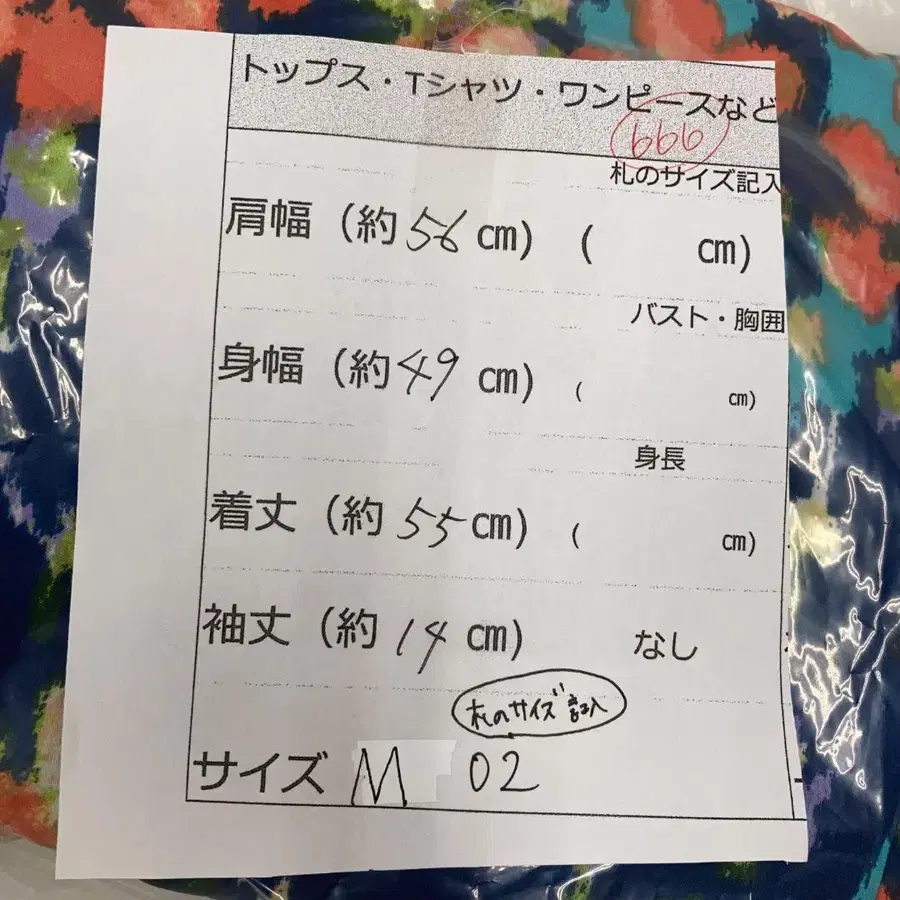 トップス・Tシャツ・ワンピースなど
666
札のサイズ記入
肩幅（約56cm）（ cm）
バスト・胸囲
身幅（約49cm）（ cm）
身長
着丈（約55cm）（ cm）
袖丈（約14cm） なし
札のサイズ記入
サイズ M 02